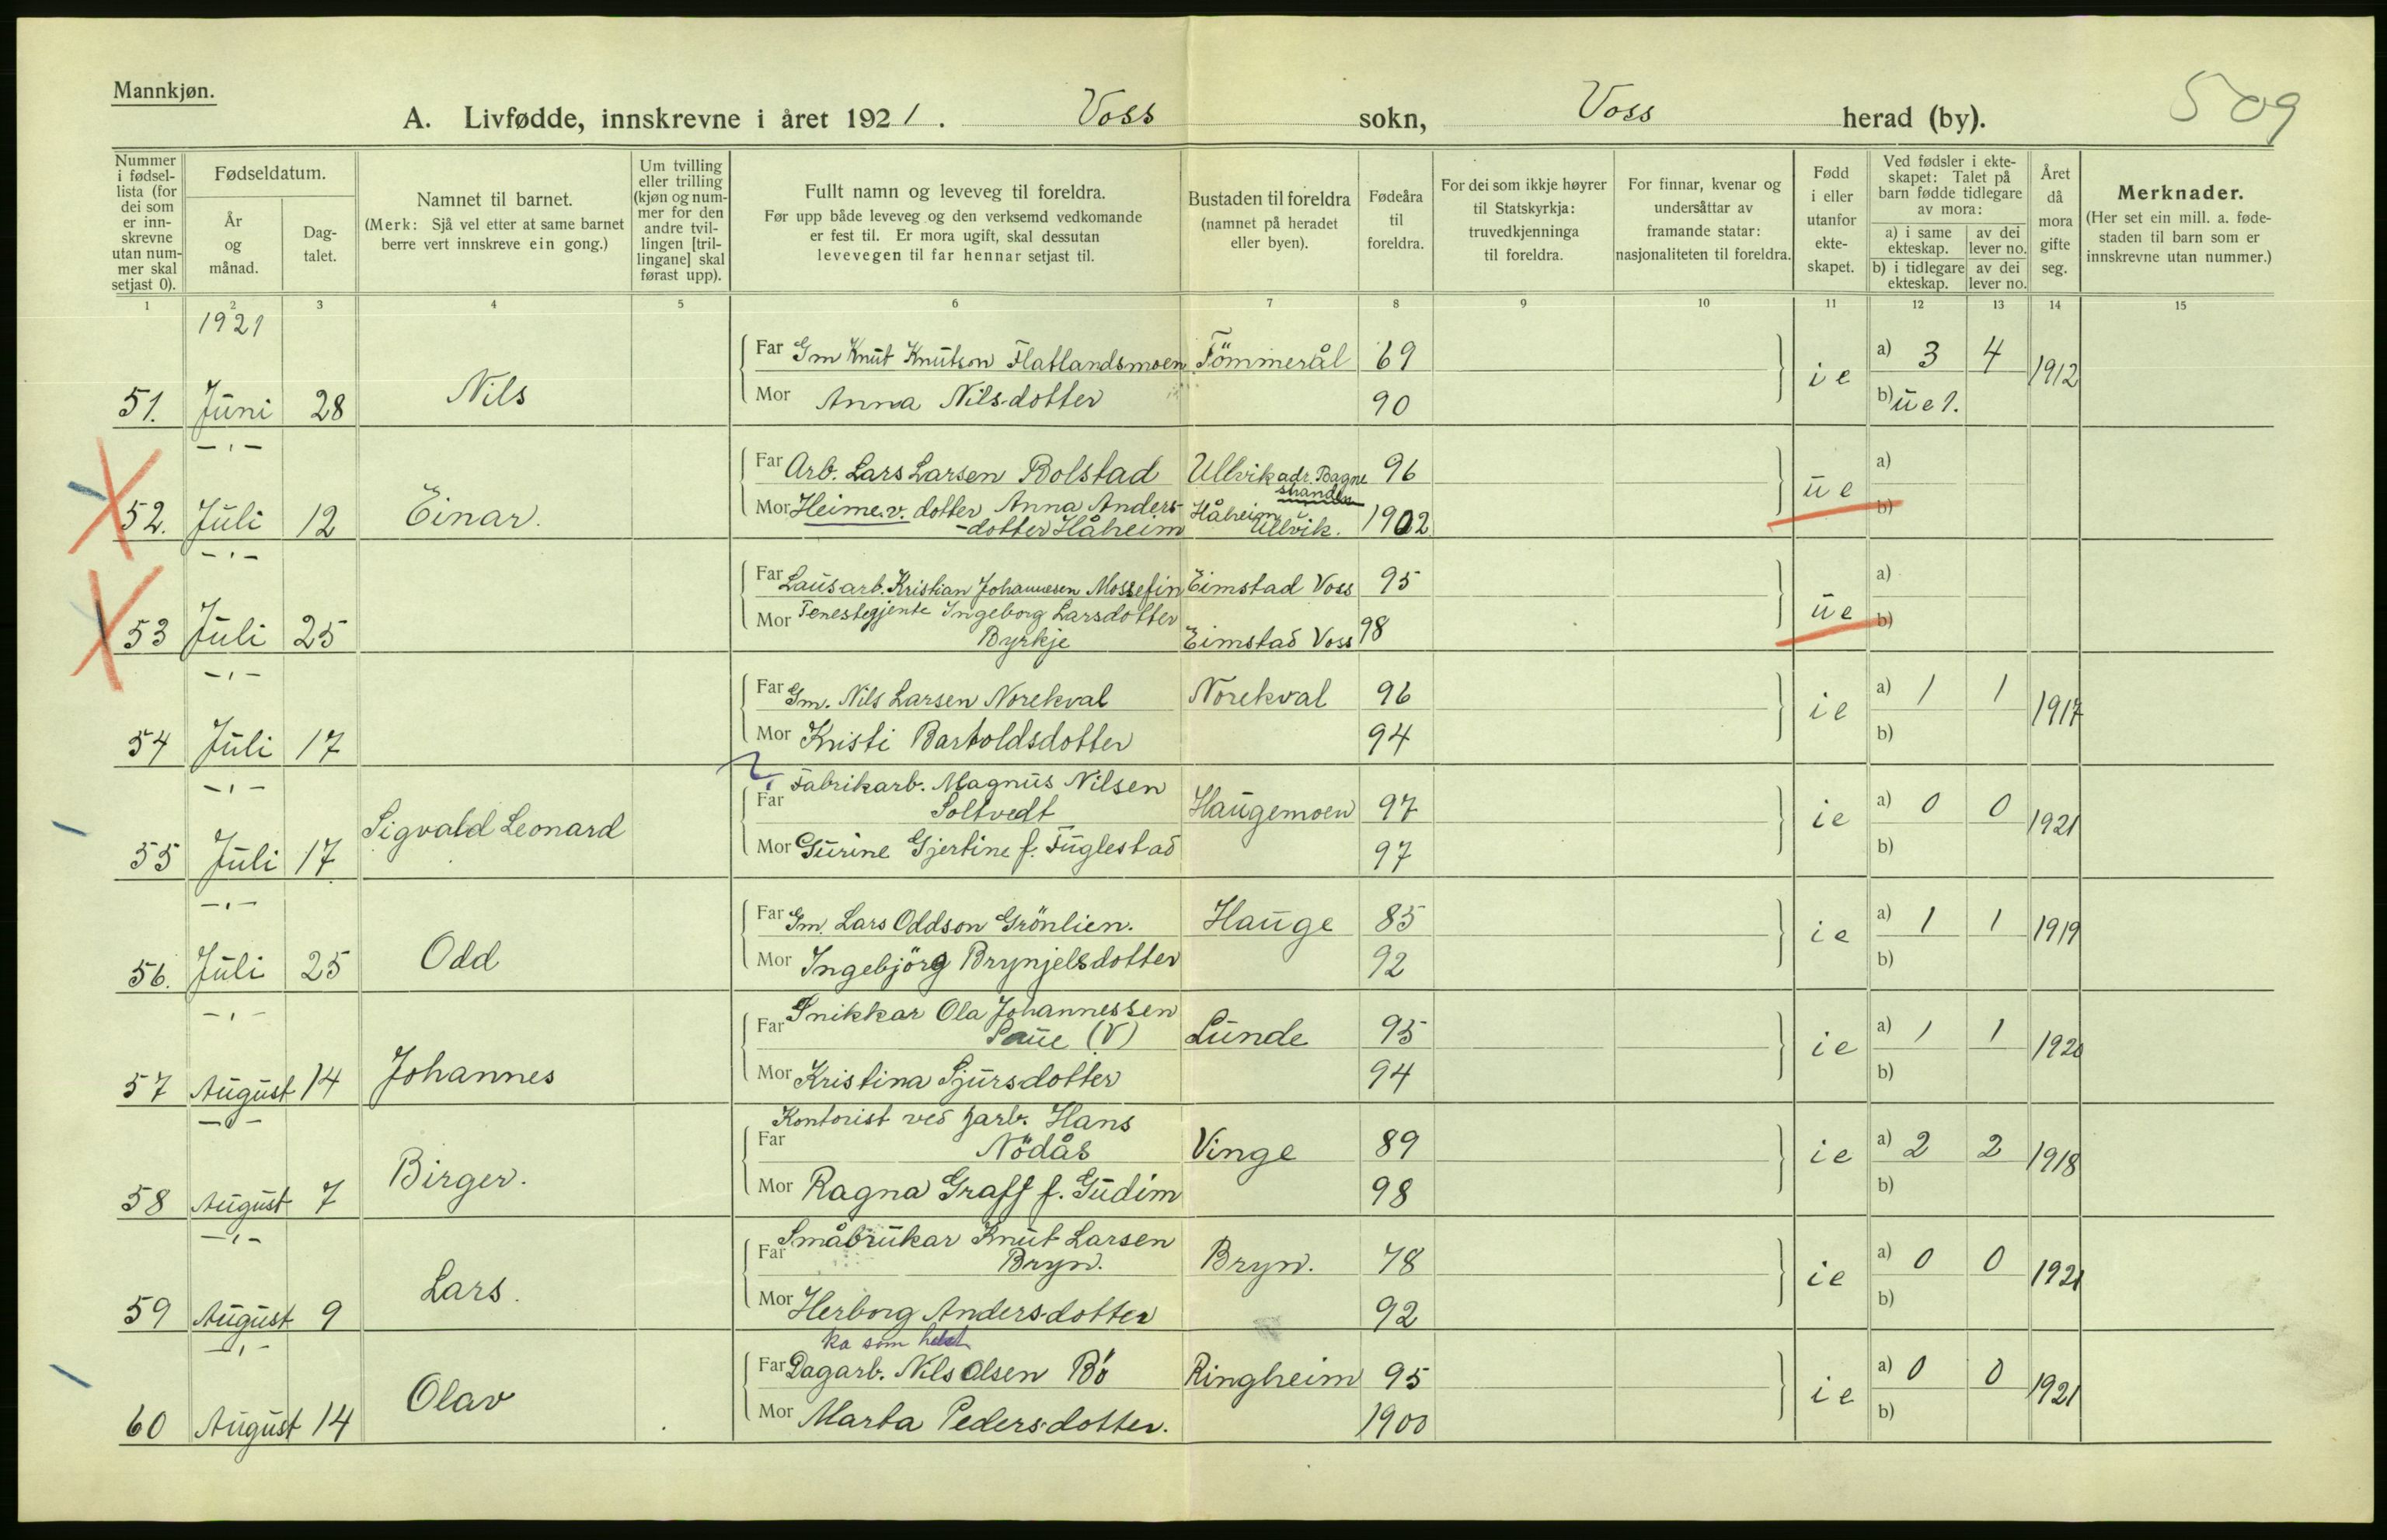 Mannkjøn.
A. Livfødde, innskrevne i året 1921. Voss sokn, Voss herad (by). 509
Nummer i fødsel-lista (for dei som er inn-skrevne utan num-mer skal setjast 0).
Fødseldatum.
År og månad.
Dag-talet.
Namnet til barnet.
(Merk: Sjå vel etter at same barnet berre vert innskreve ein gong.)
Um tvilling eller trilling (kjøn og num-mer for den andre tvil-lingen [tril-lingane] skal førast upp).
Fullt namn og leveveg til foreldra.
Før upp både leveveg og den verksemd vedkomande er fest til. Er mora ugift, skal dessutan levevegen til far hennar setjast til.
Bustaden til foreldra (namnet på heradet eller byen).
Fødeåra til foreldra.
For dei som ikkje høyrer til Statskyrkja: truvedkjenninga til foreldra.
For finnar, kvenar og undersåttar av framande statar: nasjonaliteten til foreldra.
Fødd i eller utanfor ekte-skapet.
Ved fødsler i ekte-skapet: Talet på barn fødde tidlegare av mora:
a) i same ekteskap. av dei lever no.
b) i tidlegare ekteskap. av dei lever no.
Året då mora gifte seg.
Merknader.
(Her set ein mill. a. føde-staden til barn som er innskrevne utan nummer.)
1 2 3 4 5 6 7 8 9 10 11 12 13 14 15
1921
Far Gm Knut Knutson Flatlandsmoen Tömmerål 69 a) 3 4
51. Juni 28 Nils ie 1912
Mor Anna Nilsdotter 90 b) ue 1.
— " —
Far Arb. Lars Larsen Bolstad Ullvik adr. Bagne 96 a)
stranden
52. Juli 12 Einar. ue
Mor Heimev. dotter Anna Anders- Håheim 1902 b)
-dotter Håheim Ullvik.
— " —
Far Lausarb. Kristian Johannesen Mossefin Eimstad Voss 95 a)
53 Juli 25 ue
Mor Tenestegjente Ingeborg Larsdotter 98 b)
Byrkje Eimstad Voss
— " —
Far Gm. Nils Larsen Norekval Norekval 96 a) 1 1
54 Juli 17 ie 1917
Mor Kristi Bartoldsdotter 94 b)
— " —
Fabrikarb. Magnus Nilsen
Far Soltvedt Haugemoen 97 a) 0 0
55 Juli 17 Sigvald Leonard ie 1921
Mor Gurine Gjertine f. Fuglestad 97 b)
— " —
Far Gm. Lars Oddson Grönlien. Hauge 85 a) 1 1
56. Juli 25 Odd ie 1919
Mor Ingebjörg Brynjelsdotter 92 b)
— " —
Snikkar Ola Johannessen
Far Saue (V) Lunde 95 a) 1 1
57 August 14 Johannes ie 1920
Mor Kristina Sjursdotter 94 b)
— " —
Kontorist ved jarb. Hans
Far Nödås Vinge 89 a) 2 2
58 August 7 Birger. ie 1918
Mor Ragna Graff f. Gudim 98 b)
— " —
Småbrukar Knut Larsen
Far Bryn. Bryn. 78 a) 0 0
59 August 9 Lars. ie 1921
Mor Herborg Andersdotter 92 b)
— " —
ka som helst
Far Dagarb. Nils Olsen Bö Ringheim 95 a) 0 0
60 August 14 Olav ie 1921
Mor Marta Pedersdotter. 1900 b)